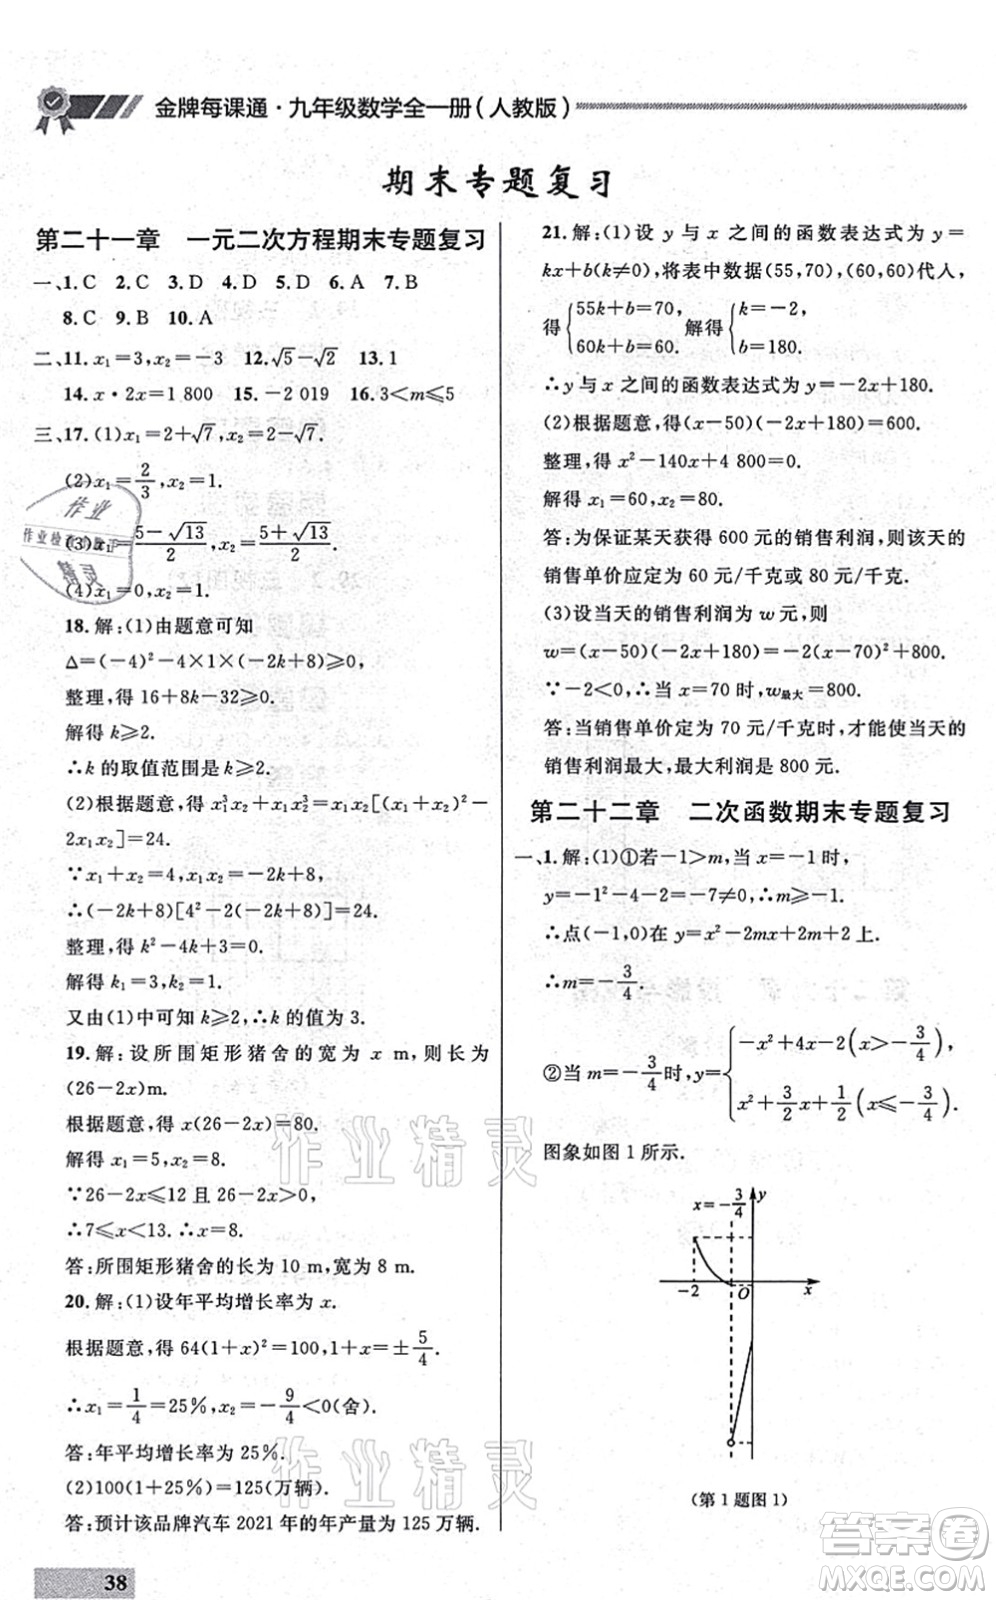 金牌每课通·九年级数学全一册(人教版)
期末专题复习
第二十一章 一元二次方程期末专题复习
一、1. C 2. C 3. D 4. D 5. D 6. A 7. B
8. C 9. B 10. A
二、11. x₁=3,x₂=-3 12. √5-√2 13. 1
14. x·2x=1 800 15. -2 019 16. 3<m⩽5
三、17. (1)x₁=2+√7,x₂=2-√7.
(2)x₁=2/3,x₂=1.
(3)x₁=(5-√13)/2,x₂=(5+√13)/2.
(4)x₁=0,x₂=1.
18. 解:(1)由题意可知
Δ=(-4)²-4×1×(-2k+8)⩾0,
整理,得 16+8k-32⩾0.
解得 k⩾2.
∴k 的取值范围是 k⩾2.
(2)根据题意,得 x₁³x₂+x₁x₂³=x₁x₂[(x₁+x₂)²-
2x₁x₂]=24.
∵x₁+x₂=4,x₁x₂=-2k+8,
∴(-2k+8)[4²-2(-2k+8)]=24.
整理,得 k²-4k+3=0.
解得 k₁=3,k₂=1.
又由(1)中可知 k⩾2,∴k 的值为 3.
19. 解:设所围矩形猪舍的宽为 x m,则长为
(26-2x)m.
根据题意,得 x(26-2x)=80.
解得 x₁=5,x₂=8.
∵26-2x⩽12 且 26-2x>0,
∴7⩽x<13. ∴x=8.
答:所围矩形猪舍的长为 10 m,宽为 8 m.
20. 解:(1)设年平均增长率为 x.
根据题意,得 64(1+x)²=100,1+x=±5/4.
∴x₁=1/4=25%,x₂=-9/4<0(舍).
答:年平均增长率为 25%.
(2)100(1+25%)=125(万辆).
答:预计该品牌汽车 2021 年的年产量为 125 万辆.
38
21. 解:(1)设 y 与 x 之间的函数表达式为 y=
kx+b(k≠0),将表中数据(55,70),(60,60)代人,
得{55k+b=70, 60k+b=60. 解得{k=-2, b=180.
∴y 与 x 之间的函数表达式为 y=-2x+180.
(2)根据题意,得(x-50)(-2x+180)=600.
整理,得 x²-140x+4 800=0.
解得 x₁=60,x₂=80.
答:为保证某天获得 600 元的销售利润,则该天的
销售单价应定为 60 元/千克或 80 元/千克.
(3)设当天的销售利润为 w 元,则
w=(x-50)(-2x+180)=-2(x-70)²+800.
∵-2<0,∴当 x=70 时,w最大=800.
答:当销售单价定为 70 元/千克时,才能使当天的
销售利润最大,最大利润是 800 元.
第二十二章 二次函数期末专题复习
一、1. 解:(1)①若-1>m,当 x=-1 时,
y=-1²-4-2=-7≠0,∴m⩾-1.
∴点(-1,0)在 y=x²-2mx+2m+2 上.
∴m=-3/4.
②当 m=-3/4时,y={-x²+4x-2(x>-3/4), x²+3/2x+1/2(x⩽-3/4).
图象如图 1 所示.
x=-3/4 y
-2 O x
(第 1 题图 1)
作业
作业检查小助手
精灵
作业精灵
作业精灵
答案圈
MXQE.COM